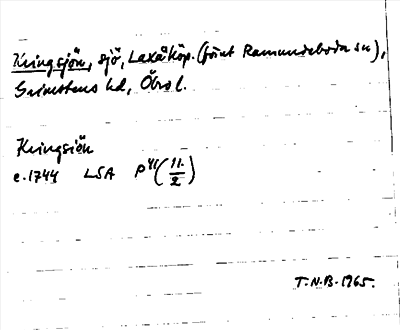 Kringsjön, sjö, Laxå köp. (förut Ramundeboda sn),
Grimstens hd, Öbro l.
Kringsiön
c. 1744 LSA P 41 (11/2)
T.N.B. 1965.